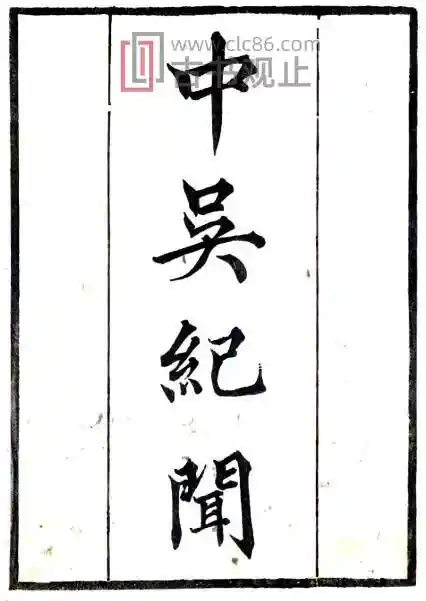 www.clc86.com
古书观止
中
吳
紀
聞